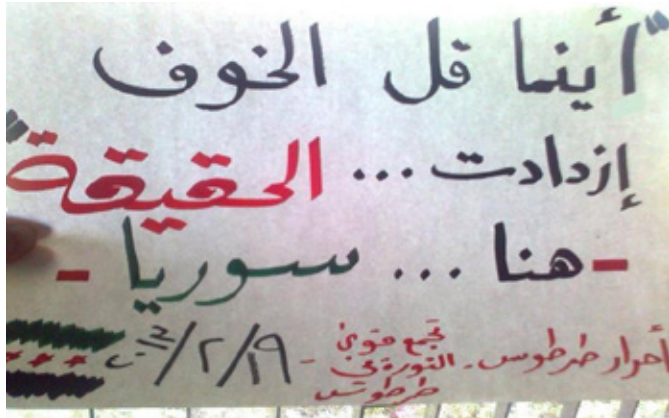 "أينما قل الخوف
إزدادت ... الحقيقة"
- هنا ... سوريا -
أحرار طرطوس - تجمع قوى الثورة في طرطوس - ١٩/٢/٢٠١٢